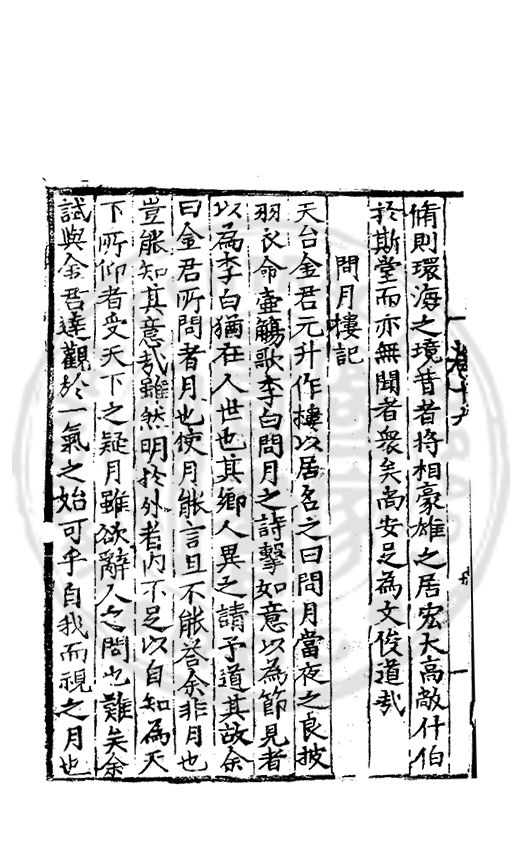 卷十九
脩則環海之境昔者將相豪雄之居宏大高敞什伯
於斯堂而亦無聞者衆矣尚安足為文俊道哉
問月樓記
天台金君元升作樓以居名之曰問月當夜之良披
羽衣命壷觴歌李白問月之詩擊如意以為節見者
以為李白猶在人世也其鄉人異之請予道其故余
曰金君所問者月也使月能言且不能荅余非月也
豈能知其意哉雖然明於外者内不足以自知為天
下所仰者受天下之疑月雖欲辭人之問也難矣余
試與金君達觀於一氣之始可乎自我而視之月也